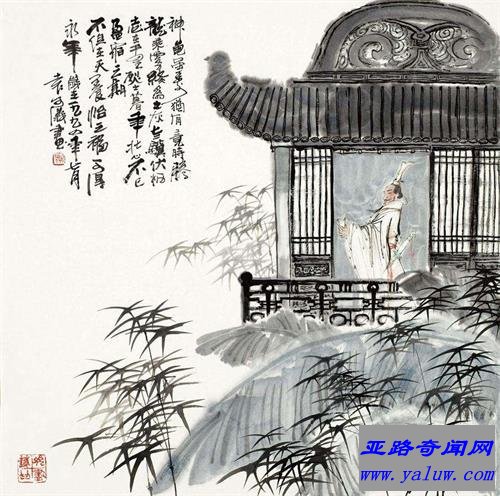 神龜雖壽猶有竟時騰
蛇乘霧終為土灰老驥伏枥
志在千里烈士暮年壯心不已
盈縮之期
不但在天養怡之福可得
永年 一九九四年七月
袁 畫
亚路奇闻网
www.yaluw.com